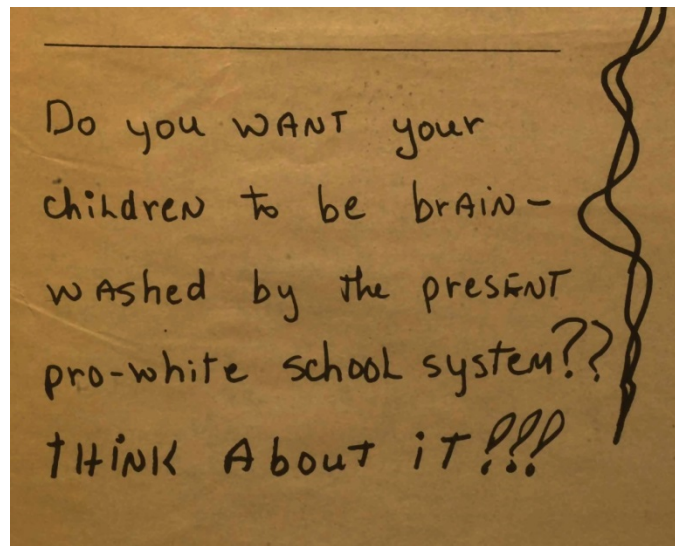 Do you WANT your
children to be brAin-
wAshed by the present
pro-white school system??
tHiNK About iT!!!